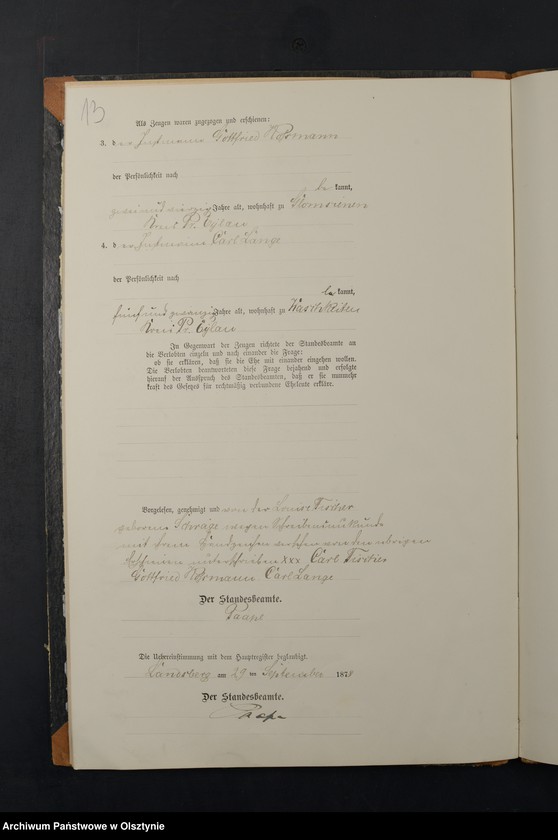 13
Als Zeugen waren zugezogen und erschienen:
3. der Instmann Gottfried Kohrmann
der Persönlichkeit nach
be kannt,
zweiundvierzig Jahre alt, wohnhaft zu
Kreis Pr. Eylau
4. der Instmann Carl Lange
der Persönlichkeit nach
be kannt,
fünfundzwanzig Jahre alt, wohnhaft zu
Kreis Pr. Eylau
In Gegenwart der Zeugen richtete der Standesbeamte an
die Verlobten einzeln und nach einander die Frage:
ob sie erklären, daß sie die Ehe mit einander eingehen wollen.
Die Verlobten beantworteten diese Frage bejahend und erfolgte
hierauf der Ausspruch des Standesbeamten, daß er sie nunmehr
kraft des Gesetzes für rechtmäßig verbundene Eheleute erkläre.
Vorgelesen, genehmigt und von der Louise Fischer
geborene Schrage wegen Schreibensunkunde
mit ihrem Handzeichen versehen von den übrigen
unterschrieben xxx Carl
Gottfried Kohrmann Carl Lange
Der Standesbeamte.
Paape
Die Uebereinstimmung mit dem Hauptregister beglaubigt.
Landsberg am 29 ten September 1878
Der Standesbeamte.
Paape
Archiwum Państwowe w Olsztynie